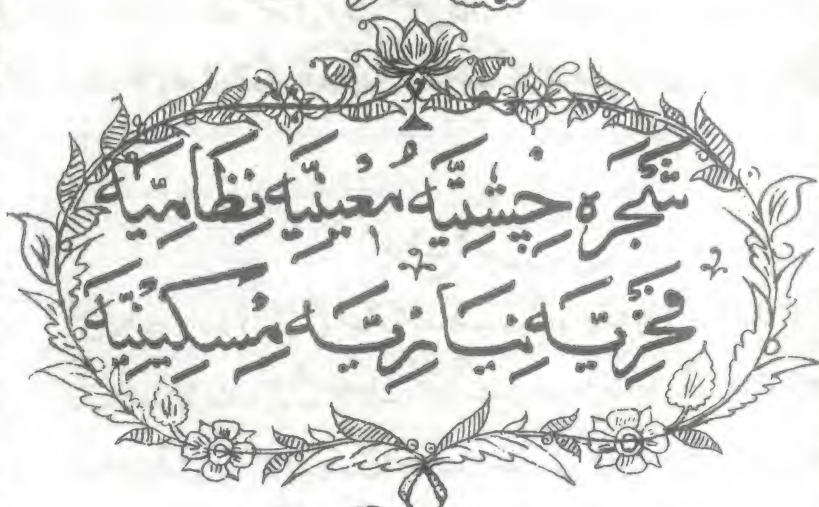 شجرہ چشتیّہ مُعینیّہ نِظامیّہ
فخریّہ نیازیّہ مِسکینیّہ